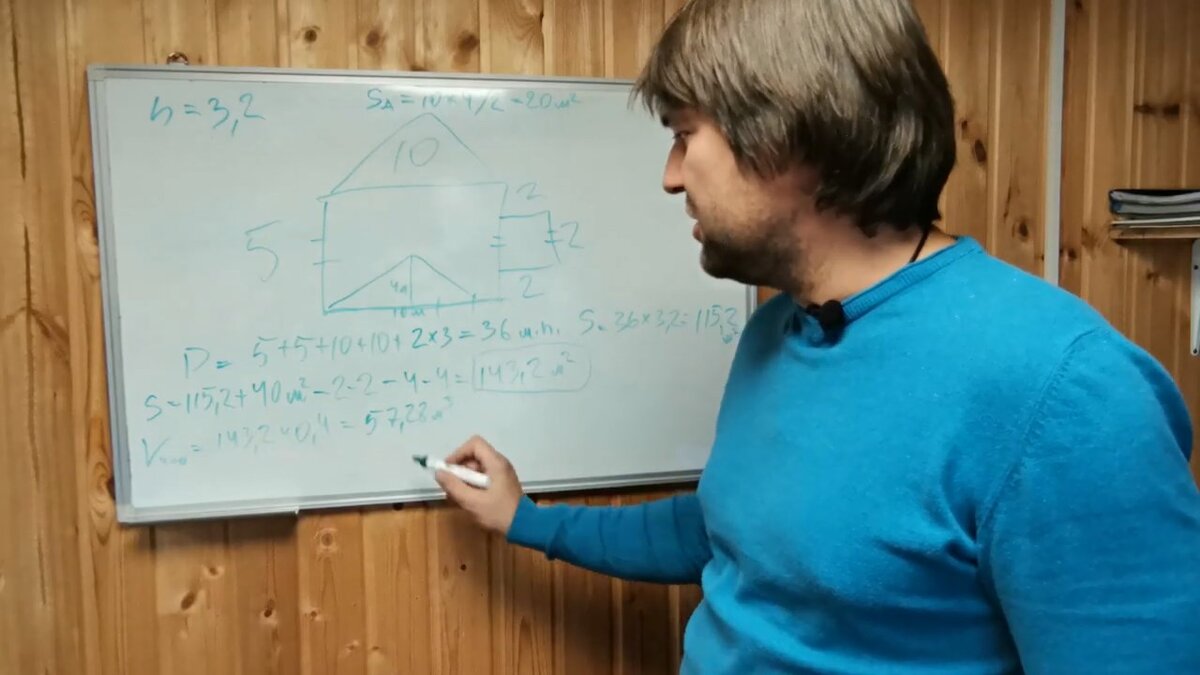 h = 3,2
S△ = 10 × 4/2 = 20 м²
10
2
5
2
2
4м
10м
P = 5+5+10+10+2×3 = 36 м.п.
S = 36 × 3,2 = 115,2
S = 115,2 + 40 м² - 2 - 2 - 4 - 4 = 143,2 м²
V = 143,2 × 0,4 = 57,28 м³